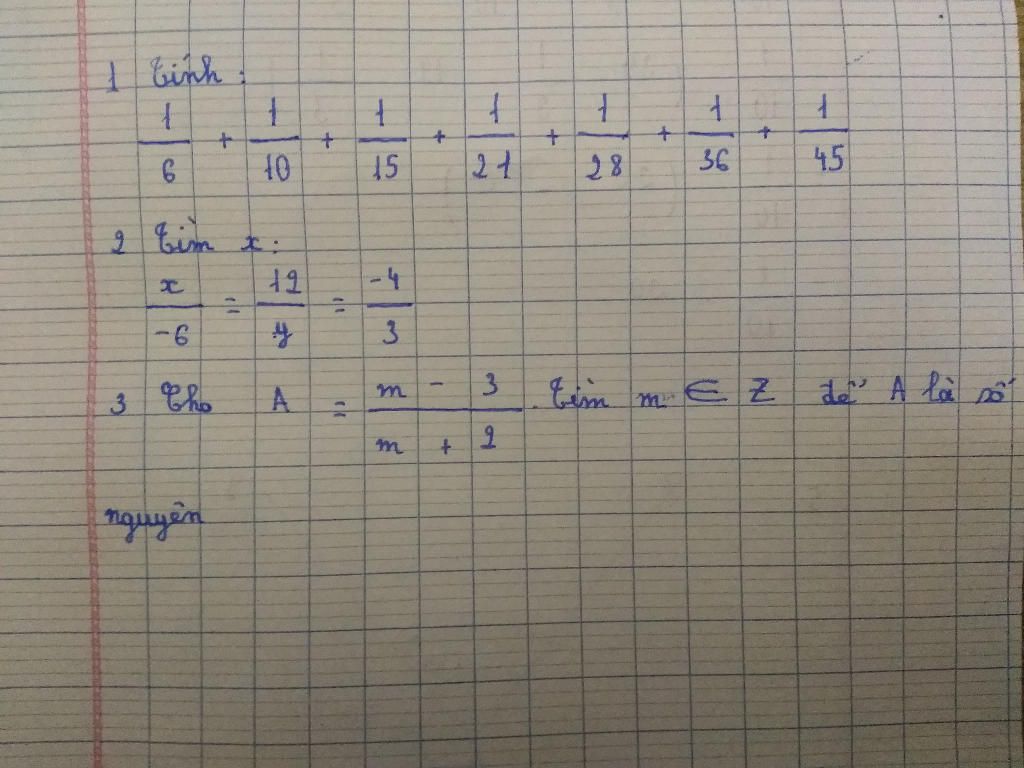 1 Tính :
1/6 + 1/10 + 1/15 + 1/21 + 1/28 + 1/36 + 1/45
2 Tìm x :
x/-6 = 12/y = -4/3
3 Cho A = m - 3/m + 2 . Tìm m ∈ Z để A là số
nguyên